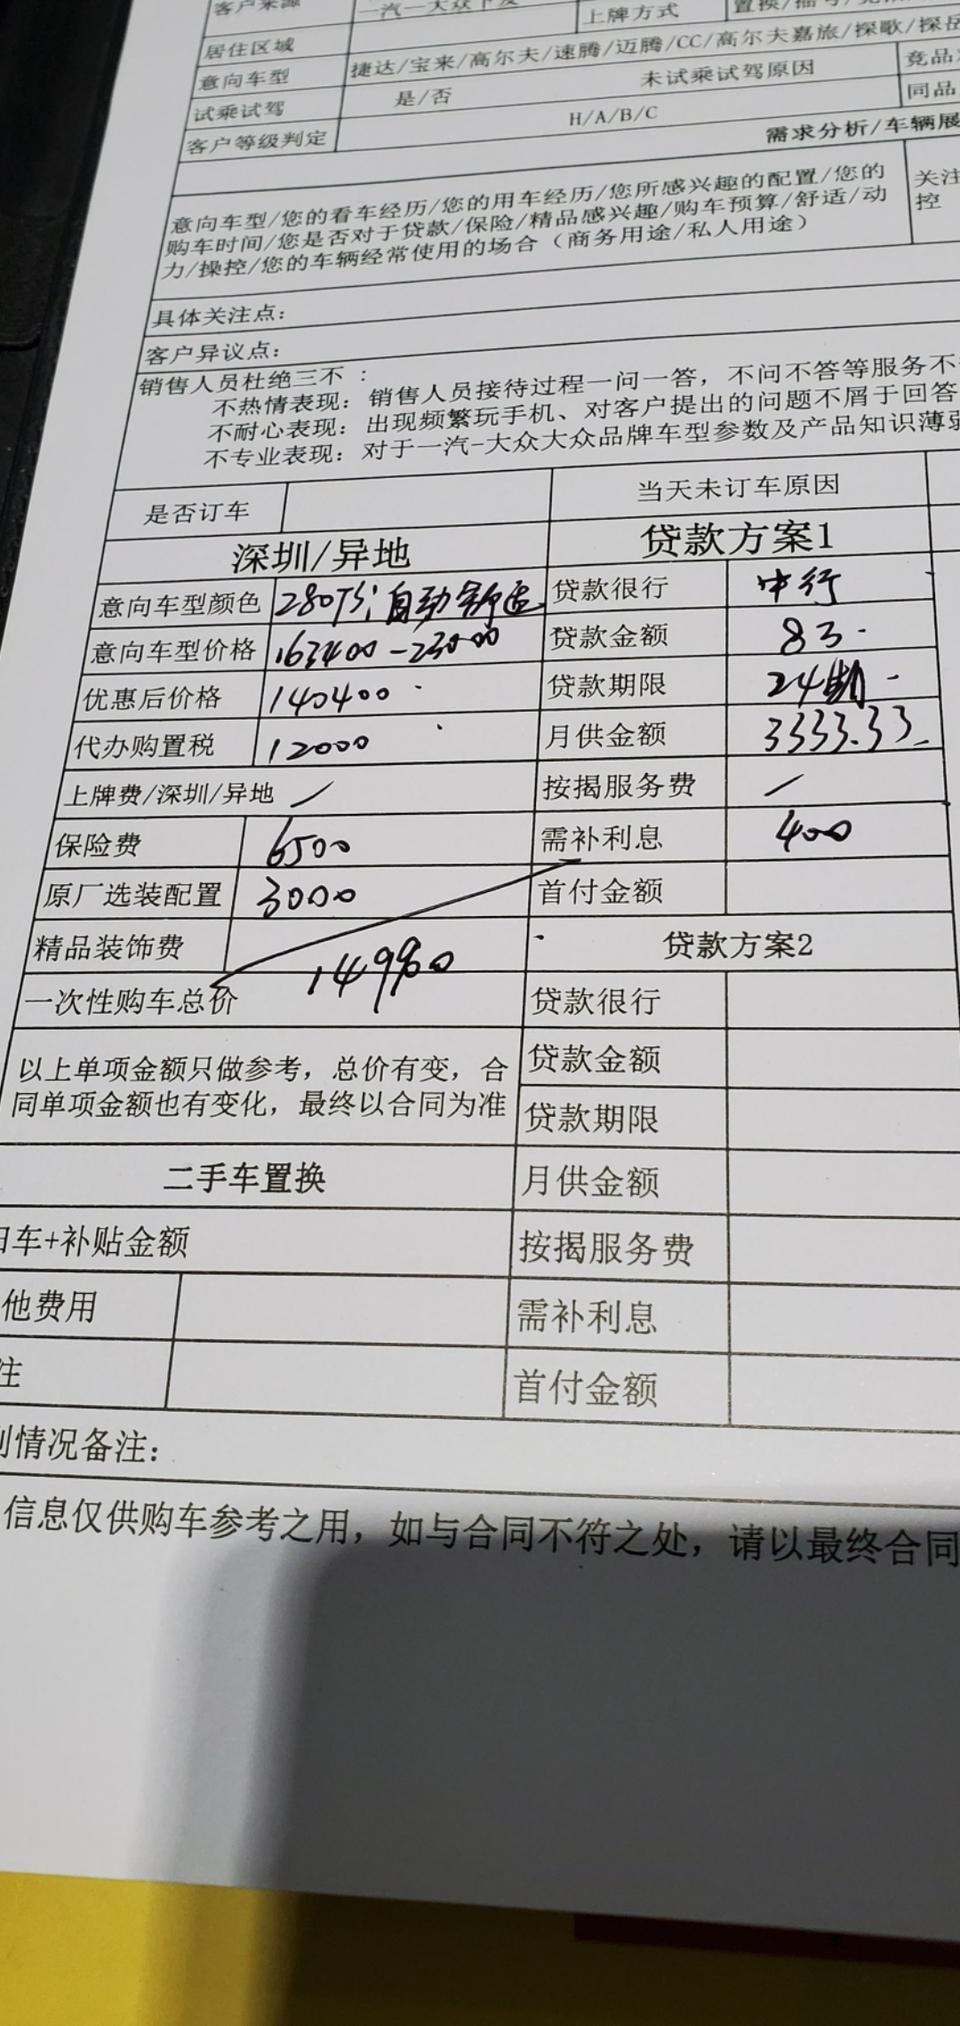 客户来源
一汽一大众下发
上牌方式
居住区域
意向车型
捷达/宝来/高尔夫/速腾/迈腾/CC/高尔夫嘉旅/探歌/探岳
试乘试驾
是/否
未试乘试驾原因
竞品
客户等级判定
H/A/B/C
同品
需求分析/车辆展
意向车型/您的看车经历/您的用车经历/您所感兴趣的配置/您的
购车时间/您是否对于贷款/保险/精品感兴趣/购车预算/舒适/动
力/操控/您的车辆经常使用的场合（商务用途/私人用途）
关注
控
具体关注点：
客户异议点：
销售人员杜绝三不：
不热情表现：销售人员接待过程一问一答，不问不答等服务不
不耐心表现：出现频繁玩手机、对客户提出的问题不屑于回答
不专业表现：对于一汽-大众大众品牌车型参数及产品知识薄弱
是否订车
当天未订车原因
深圳/异地
贷款方案1
意向车型颜色
280TSi自动舒适
贷款很行
中行
意向车型价格
163400-23000
贷款金额
83.
优惠后价格
140400
贷款期限
24期
代办购置税
12000
月供金额
3333.33
上牌费/深圳/异地 /
按揭服务费
/
保险费
6500
需补利息
400
原厂选装配置
3000
首付金额
精品装饰费
贷款方案2
一次性购车总价
贷款很行
以上单项金额只做参考，总价有变，合
同单项金额也有变化，最终以合同为准
贷款金额
贷款期限
二手车置换
月供金额
旧车+补贴金额
按揭服务费
他费用
需补利息
注
首付金额
情况备注：
信息仅供购车参考之用，如与合同不符之处，请以最终合同